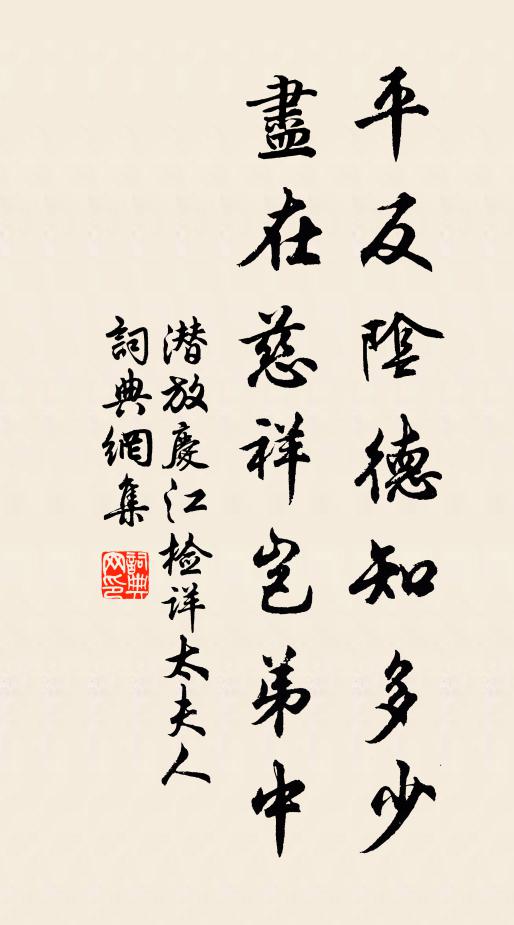 平反陰德知多少
盡在慈祥岂弟中
潜放慶江检详太夫人
詞典網集
詞典網印